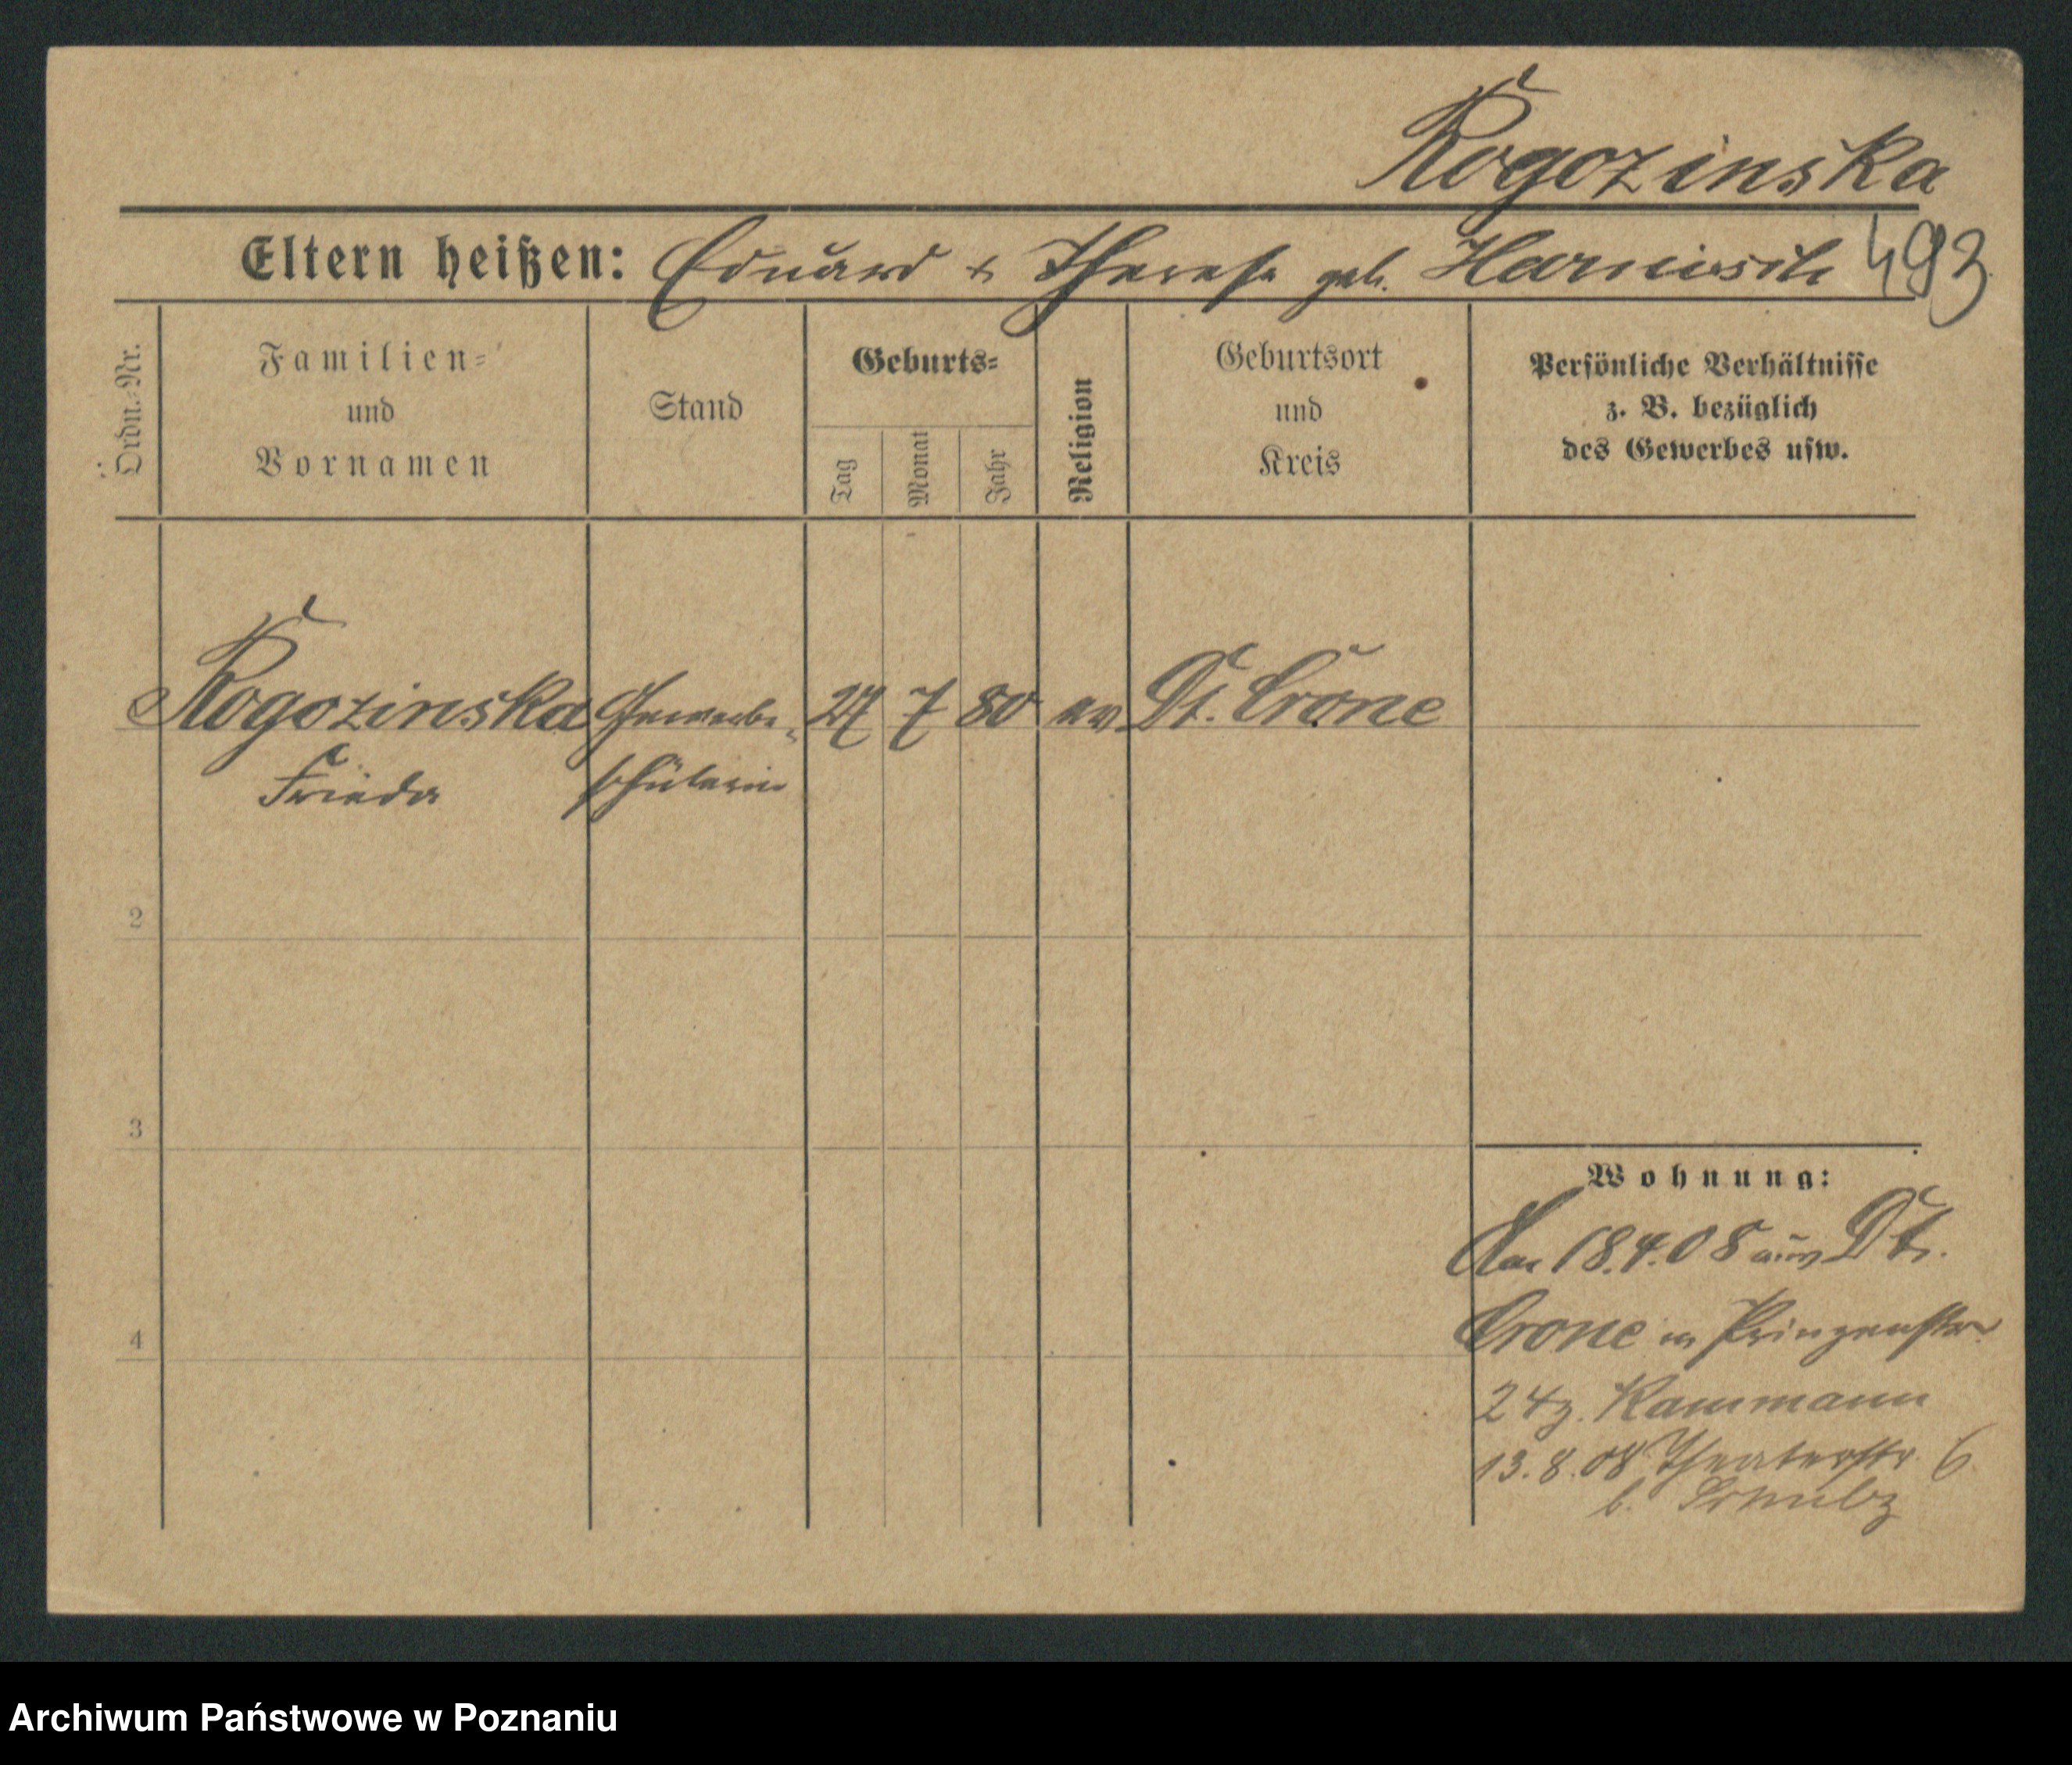 Rogozinska
Eltern heißen: Eduard & Therese geb. Harnisch 493
Ordn.-Nr.
Familien-
und
Vornamen
Stand
Geburts-
Tag
Monat
Jahr
Religion
Geburtsort
und
Kreis
Persönliche Verhältnisse
z. B. bezüglich
des Gewerbes usw.
Rogozinska Gewerbe- 27 7 80 ev. Dt. Crone
Frieda schülerin
2
3
4
Wohnung:
18.4.08 aus Dt.
Crone n Prinzenstr.
24 Kammann
13.8.08 Theaterstr. 6
b.
Archiwum Państwowe w Poznaniu